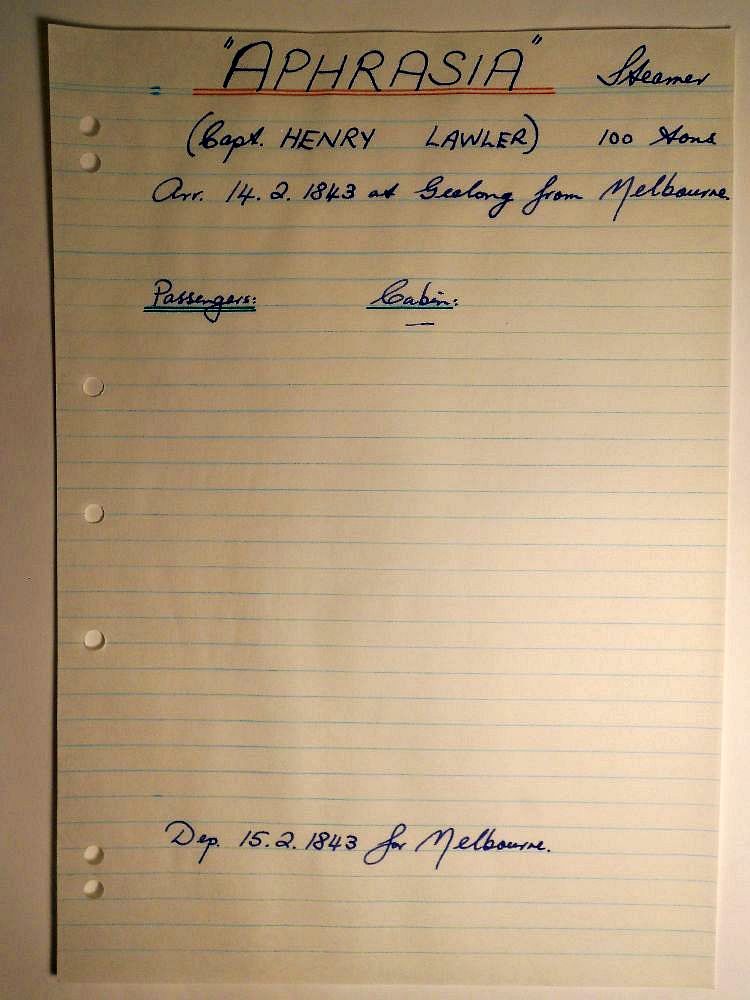 "APHRASIA" Steamer
(Capt. HENRY LAWLER) 100 tons
Arr. 14.2.1843 at Geelong from Melbourne.
Passengers: Cabin:
—
Dep. 15.2.1843 for Melbourne.